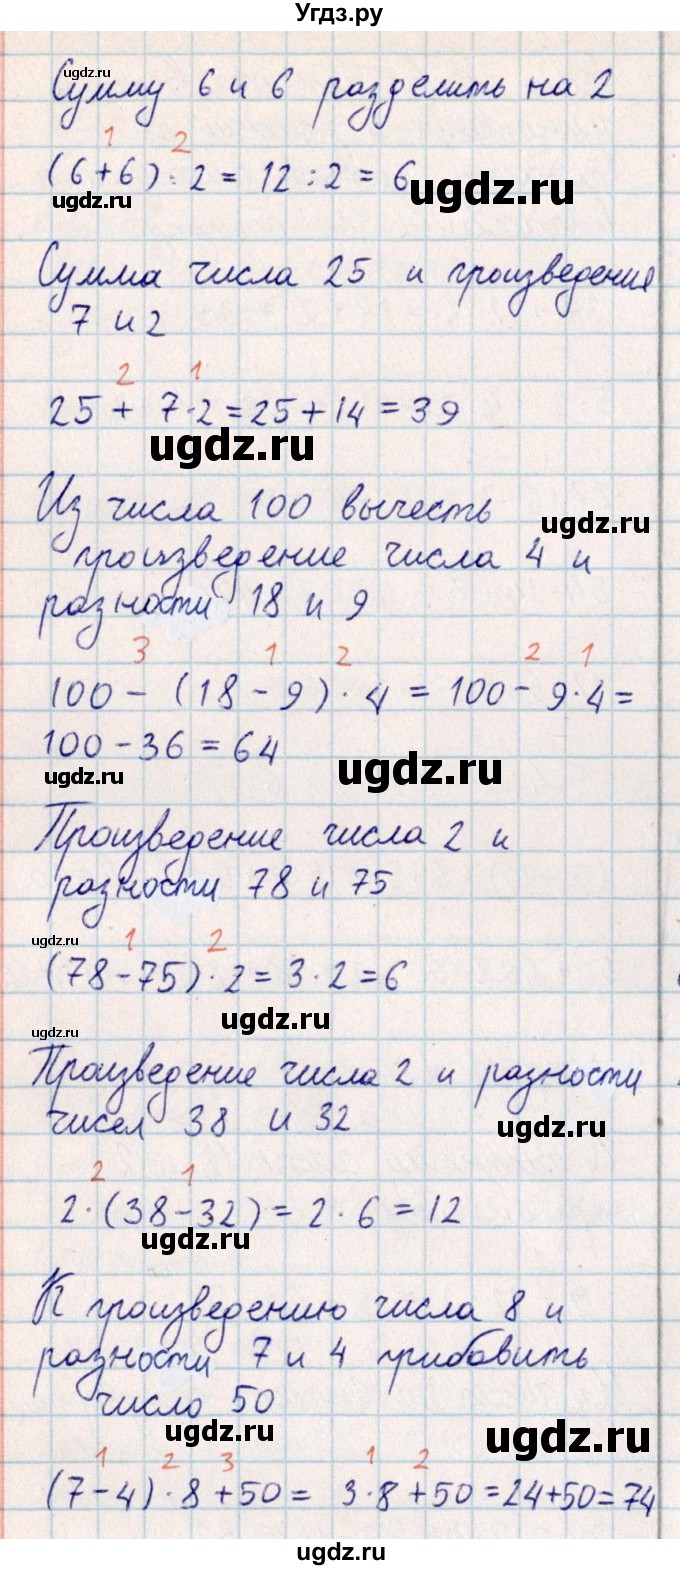 Угдз.ру
ugdz.ru
Сумму 6 и 6 разделить на 2
1 2
(6+6) : 2 = 12 : 2 = 6
ugdz.ru
ugdz.ru
Сумма числа 25 и произведения
7 и 2
2 1
25 + 7·2 = 25 + 14 = 39
ugdz.ru
Из числа 100 вычесть
ugdz.ru
произведение числа 4 и
разности 18 и 9
3 1 2 2 1
100 - (18 - 9) · 4 = 100 - 9·4 =
100 - 36 = 64
ugdz.ru
ugdz.ru
Произведение числа 2 и
разности 78 и 75
ugdz.ru
1 2
(78-75)·2 = 3·2 = 6
ugdz.ru
ugdz.ru
Произведение числа 2 и разности
чисел 38 и 32
ugdz.ru
2 1
2·(38-32) = 2·6 = 12
ugdz.ru
К произведению числа 8 и
разности 7 и 4 прибавить
число 50
ugdz.ru
ugdz.ru
1 2 3 1 2
(7-4)·8 + 50 = 3·8 + 50 = 24+50 = 74
ugdz.ru